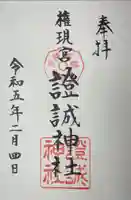 奉拝
権現宮
證誠神社
令和五年二月四日